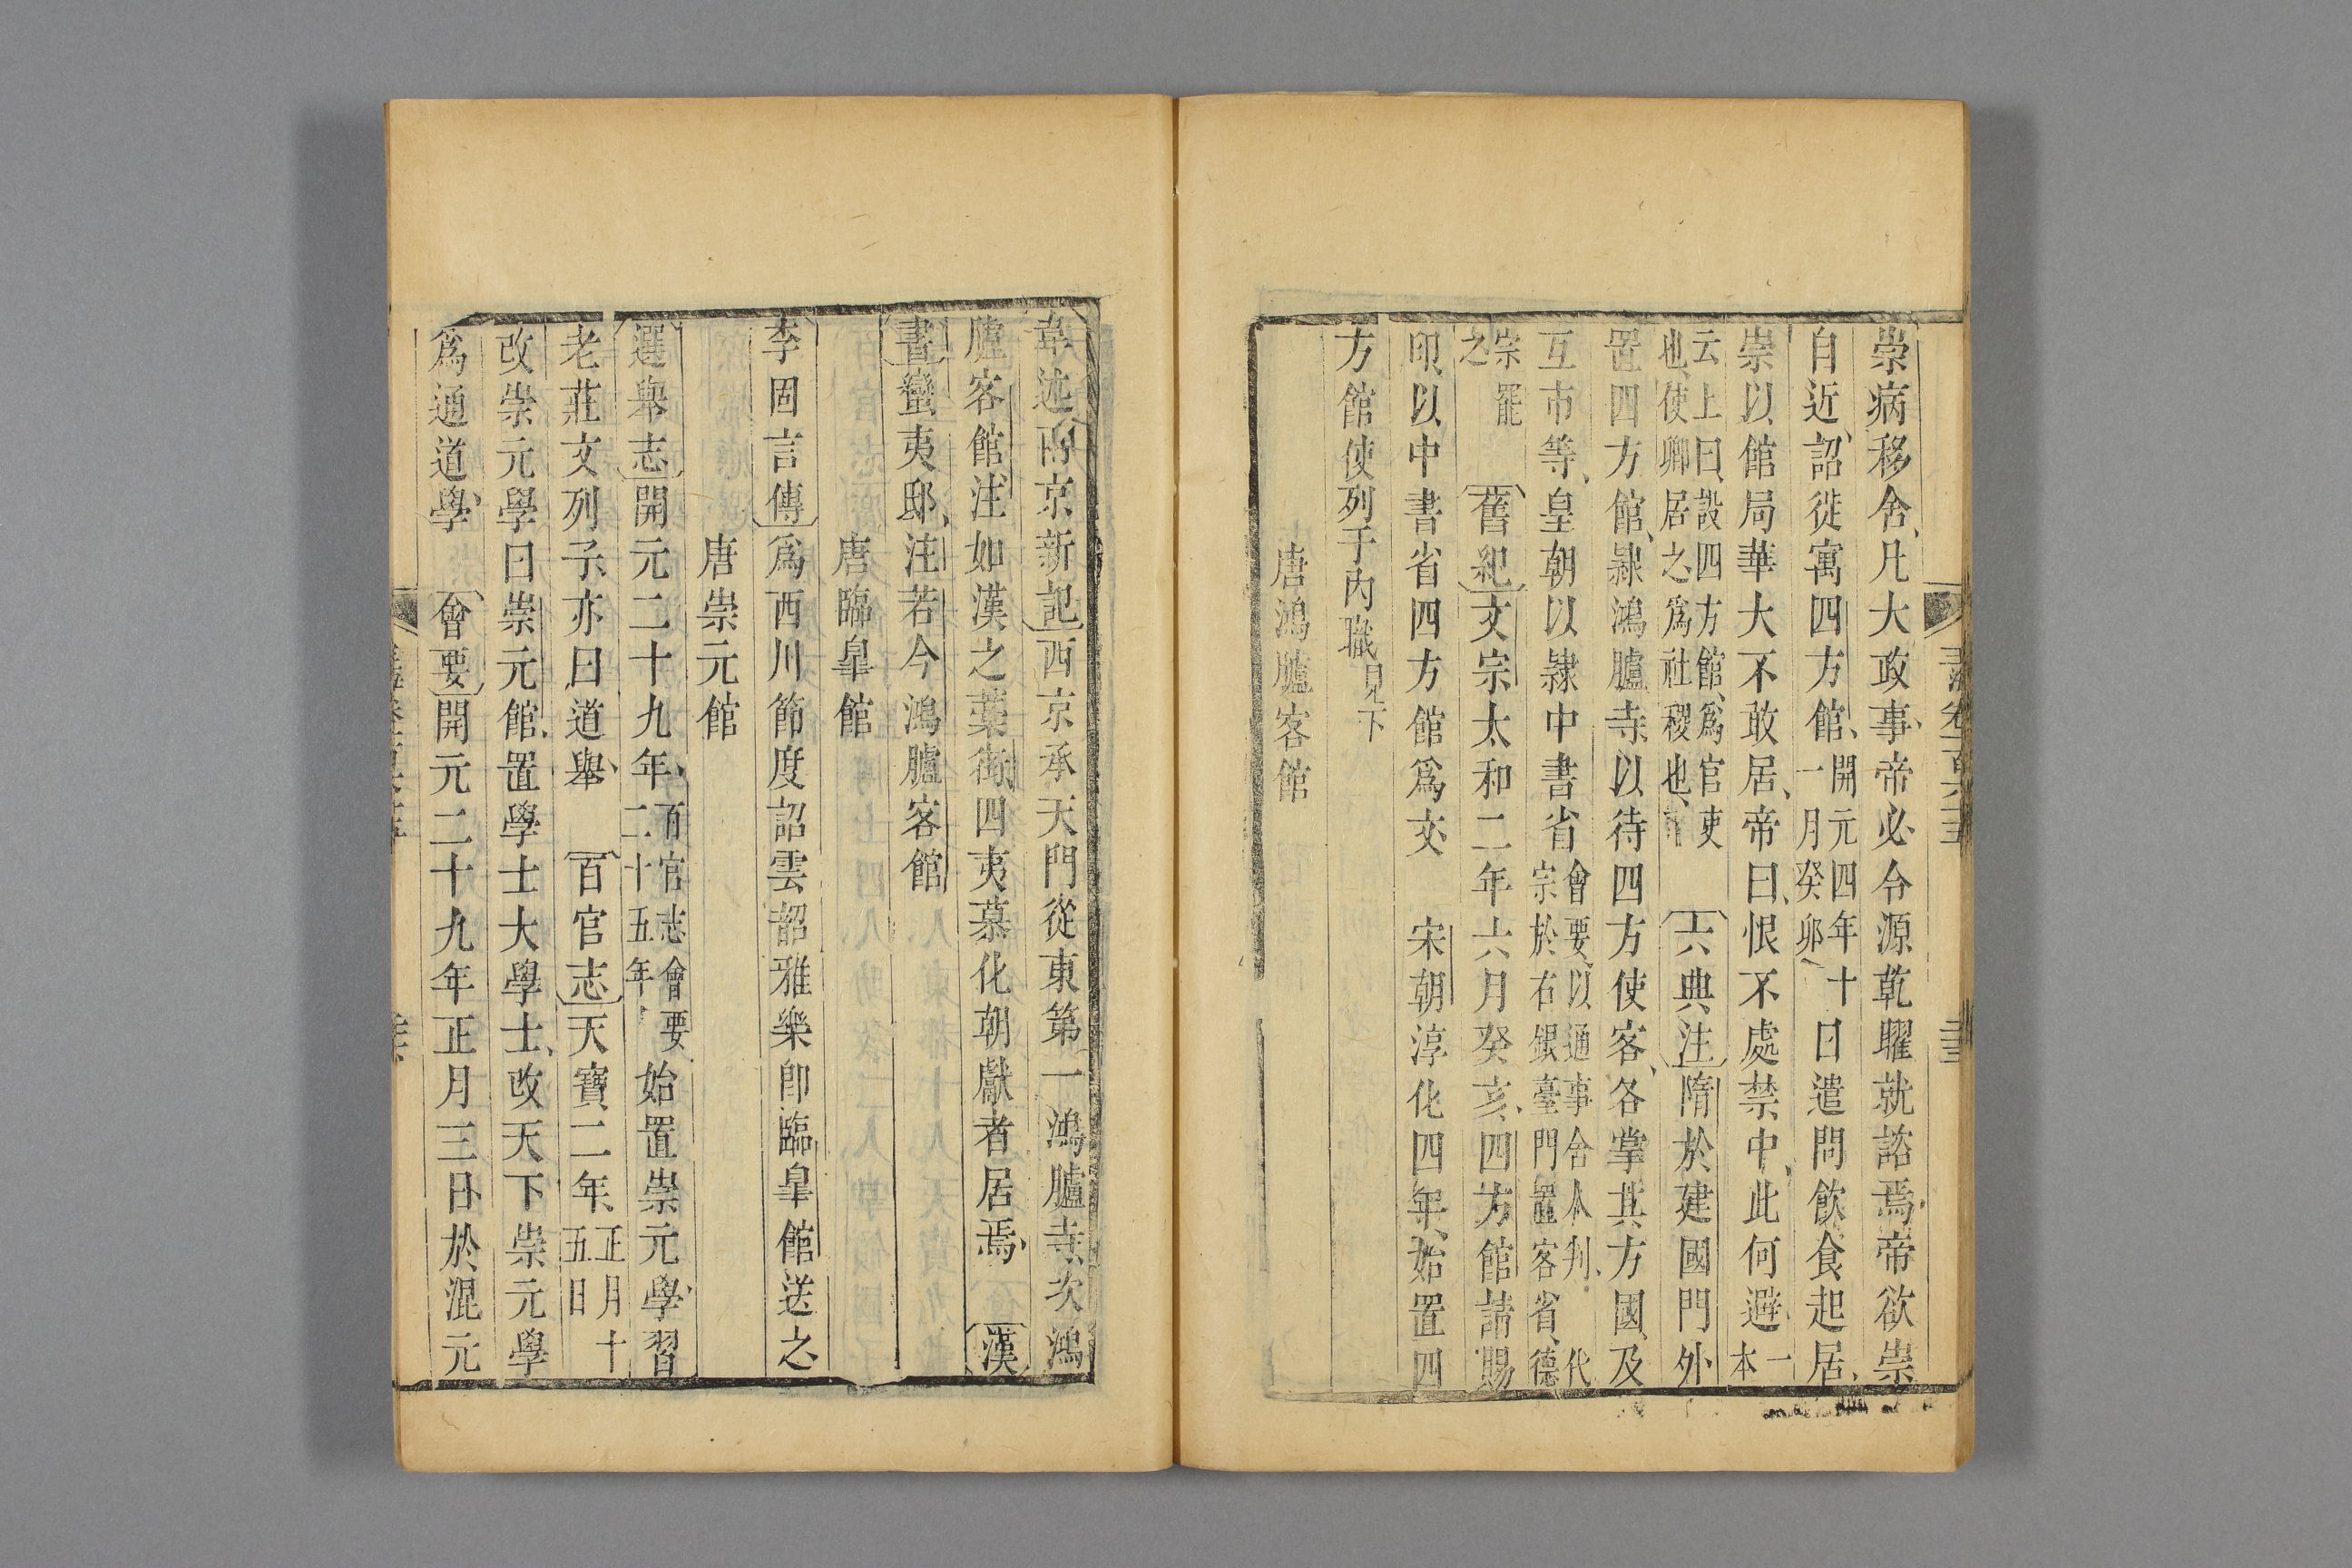 崇病移舍凡大政事帝必令源乾曜就諮焉帝欲崇
自近詔徙寓四方館開元四年十一月癸卯日遣問飲食起居
崇以館局華大不敢居帝曰恨不處禁中此何避一本
云上曰設四方館爲官吏也使卿居之爲社稷也六典注隋於建國門外
置四方館隷鴻臚寺以待四方使客各掌其方國及
互市等皇朝以隷中書省會要以通事舍人判代宗於右銀臺門置客省德
宗罷之舊紀文宗太和二年六月癸亥四方館請賜
印以中書省四方館爲文宋朝淳化四年始置四
方館使列于內職見下
唐鴻臚客館
韋述兩京新記西京承天門從東第一鴻臚寺次鴻
臚客館注如漢之藁街四夷慕化朝獻者居焉漢
書蠻夷邸注若今鴻臚客館
唐臨皐館
李固言傳爲西川節度詔雲韶雅樂卽臨皐館送之
唐崇元館
選舉志開元二十九年百官志會要二十五年始置崇元學習
老莊文列子亦曰道舉百官志天寶二年正月十五日
改崇元學曰崇元館置學士大學士改天下崇元學
爲通道學會要開元二十九年正月三日於混元